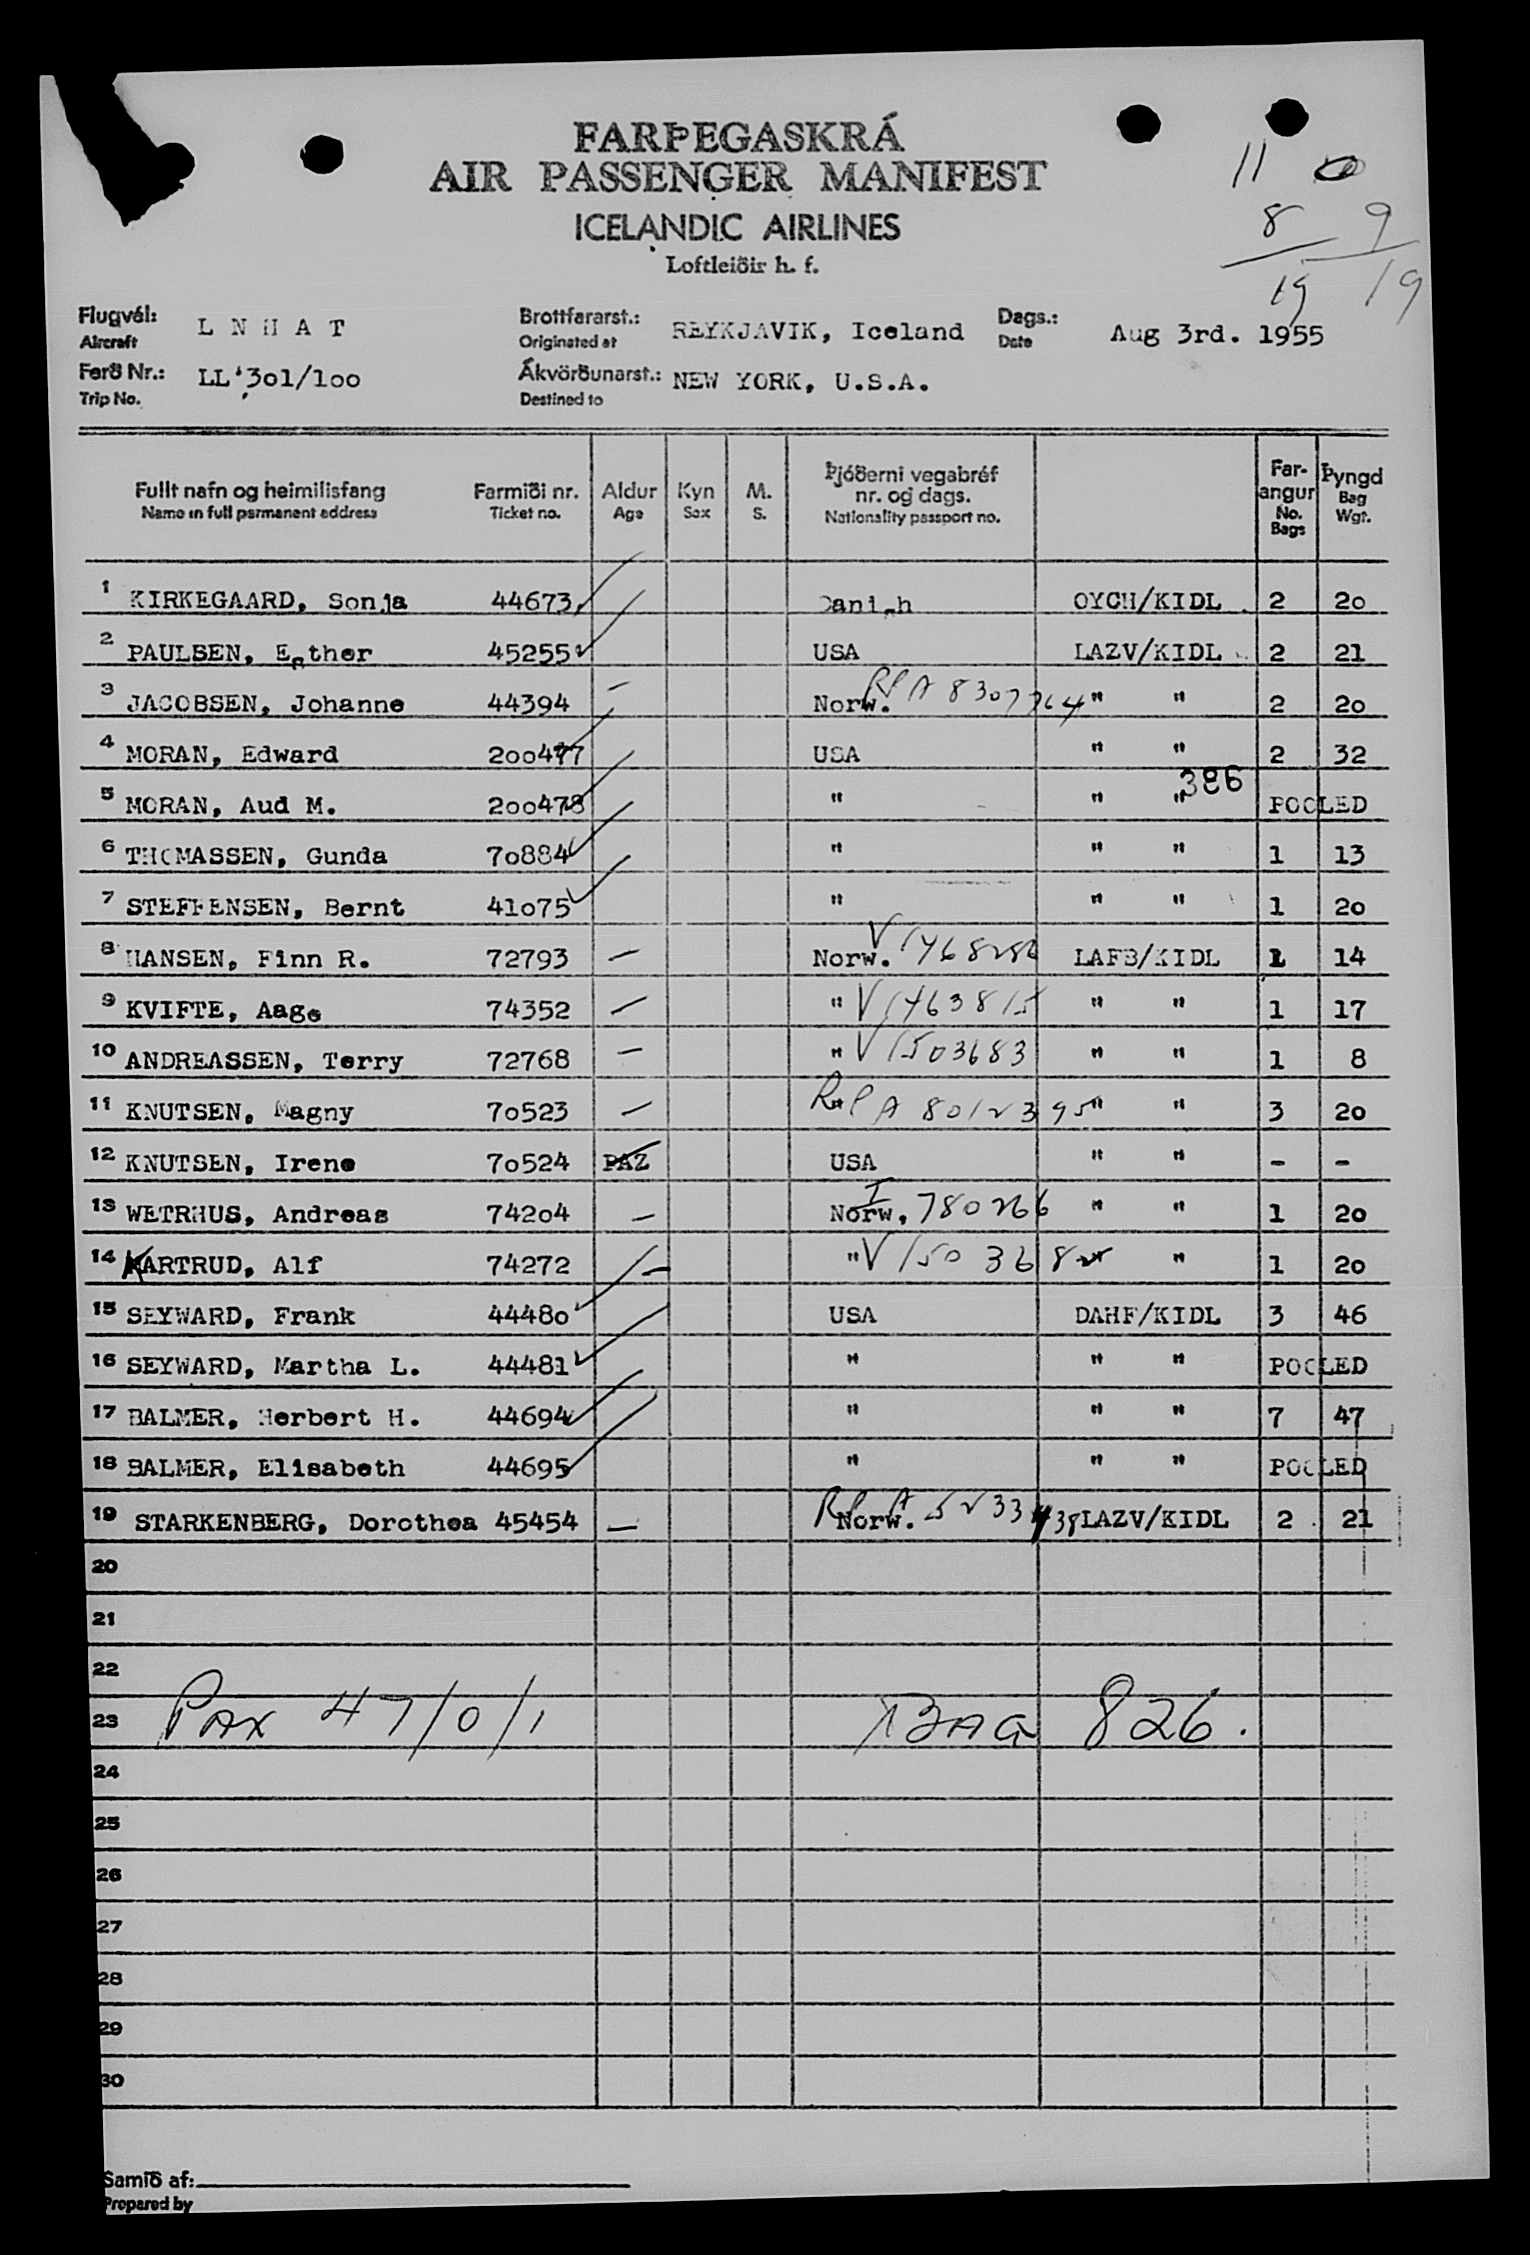 FARÞEGASKRÁ
AIR PASSENGER MANIFEST
ICELANDIC AIRLINES
Loftleiðir h. f.
11
8 9
19 19
Flugvél: L N H A T Brottfararst.: REYKJAVIK, Iceland Dags.: Aug 3rd. 1955
Aircraft Originated at Date
Ferð Nr.: LL 301/100 Ákvörðunarst.: NEW YORK, U.S.A.
Trip No. Destined to
Fullt nafn og heimilisfang Farmiði nr. Aldur Kyn M. Þjóðerni vegabréf nr. og dags. Far-angur Þyngd
Name in full permanent address Ticket no. Age Sex S. Nationality passport no. No. Bags Bag Wgt.
1 KIRKEGAARD, Sonja 44673 Danish OYCH/KIDL 2 20
2 PAULSEN, Esther 45255 USA LAZV/KIDL 2 21
3 JACOBSEN, Johanne 44394 — Norw. RP A 8307764 " " 2 20
4 MORAN, Edward 200477 USA " " 2 32
5 MORAN, Aud M. 200478 " " " 386 POOLED
6 THOMASSEN, Gunda 70884 " " " 1 13
7 STEFFENSEN, Bernt 41075 " " " 1 20
8 HANSEN, Finn R. 72793 — Norw. LAFB/KIDL 1 14
9 KVIFTE, Aage 74352 — " V 1463815 " " 1 17
10 ANDREASSEN, Terry 72768 — " V 1503683 " " 1 8
11 KNUTSEN, Magny 70523 — " RP A 8012395 " " 3 20
12 KNUTSEN, Irene 70524 PAZ USA " " - -
13 WETRHUS, Andreas 74204 — Norw. I 780266 " " 1 20
14 KARTRUD, Alf 74272 — " V 150368 " 1 20
15 SEYWARD, Frank 44480 USA DAHF/KIDL 3 46
16 SEYWARD, Martha L. 44481 " " " POOLED
17 BALMER, Herbert H. 44694 " " " 7 47
18 BALMER, Elisabeth 44695 " " " POOLED
19 STARKENBERG, Dorothea 45454 — Norw. RP A 5233438 LAZV/KIDL 2 21
20
21
22
23 PAX 47/0/1 BAG 826.
24
25
26
27
28
29
30
Samið af:
Prepared by